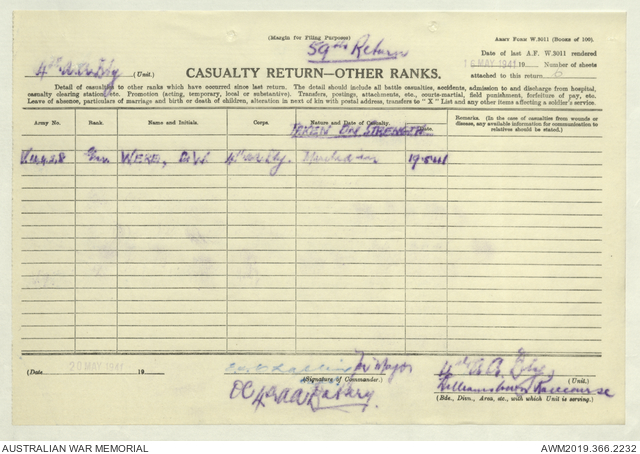 (Margin for Filing Purposes)
ARMY FORM W.3011 (BOOKS OF 100).
59th Return
Date of last A.F. W.3011 rendered
16 MAY 1941 19
4th A.A. Bty (Unit.)
CASUALTY RETURN—OTHER RANKS.
Number of sheets attached to this return 6
Detail of casualties to other ranks which have occurred since last return. The detail should include all battle casualties, accidents, admission and discharge from hospital,
casualty clearing station, etc. Promotion (acting, temporary, local or substantive). Transfers, postings, attachments, etc., courts-martial, field punishment, forfeiture of pay, etc.
Leave of absence, particulars of marriage and birth or death of children, alteration in next of kin with postal address, transfers to "X" List and any other items affecting a soldier's service.
TAKEN ON STRENGTH
Army No. Rank. Name and Initials. Corps. Nature and Date of Casualty. Remarks. (In the case of casualties from wounds or disease, any available information for communication to relatives should be stated.)
Gnr WEKE, 4th AA Bty. 19-5-41
(Date 20 MAY 1941 19
for Major
4th A.A. Bty. (Unit.)
(Signature of Commander.)
Williamstown Racecourse
OC 4th AA Battery.
(Bde., Divn., Area, etc., with which Unit is serving.)
AUSTRALIAN WAR MEMORIAL
AWM2019.366.2232